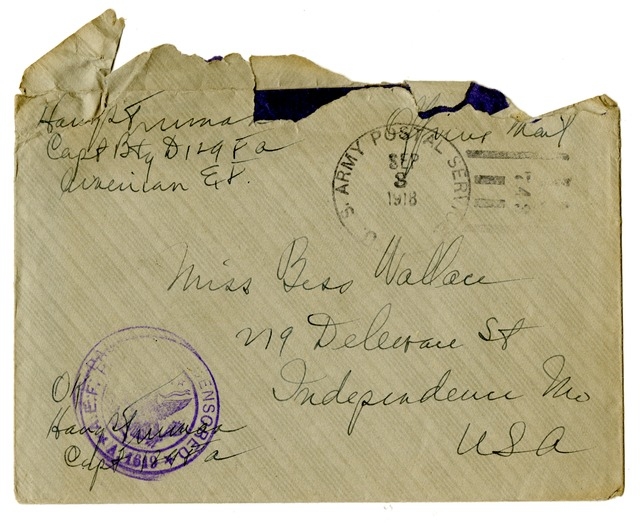 Harry S Truman
Capt Bty D 129 F a
American E.F.
Officers Mail
U. S. ARMY POSTAL SERVICE
SEP
3
1918
Miss Bess Wallace
219 Delaware St
Independence Mo
USA
OK
Harry S Truman
Capt 129 F a
A.E.F.
CENSORED
A.1619